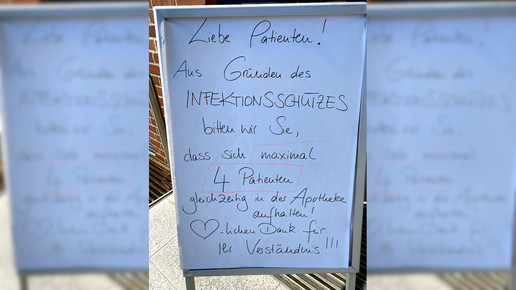 Liebe Patienten!
Aus Gründen des
INFEKTIONSSCHUTZES
bitten wir Sie,
dass sich maximal
4 Patienten
gleichzeitig in der Apotheke
aufhalten!
♡-lichen Dank für
Ihr Verständnis!!!